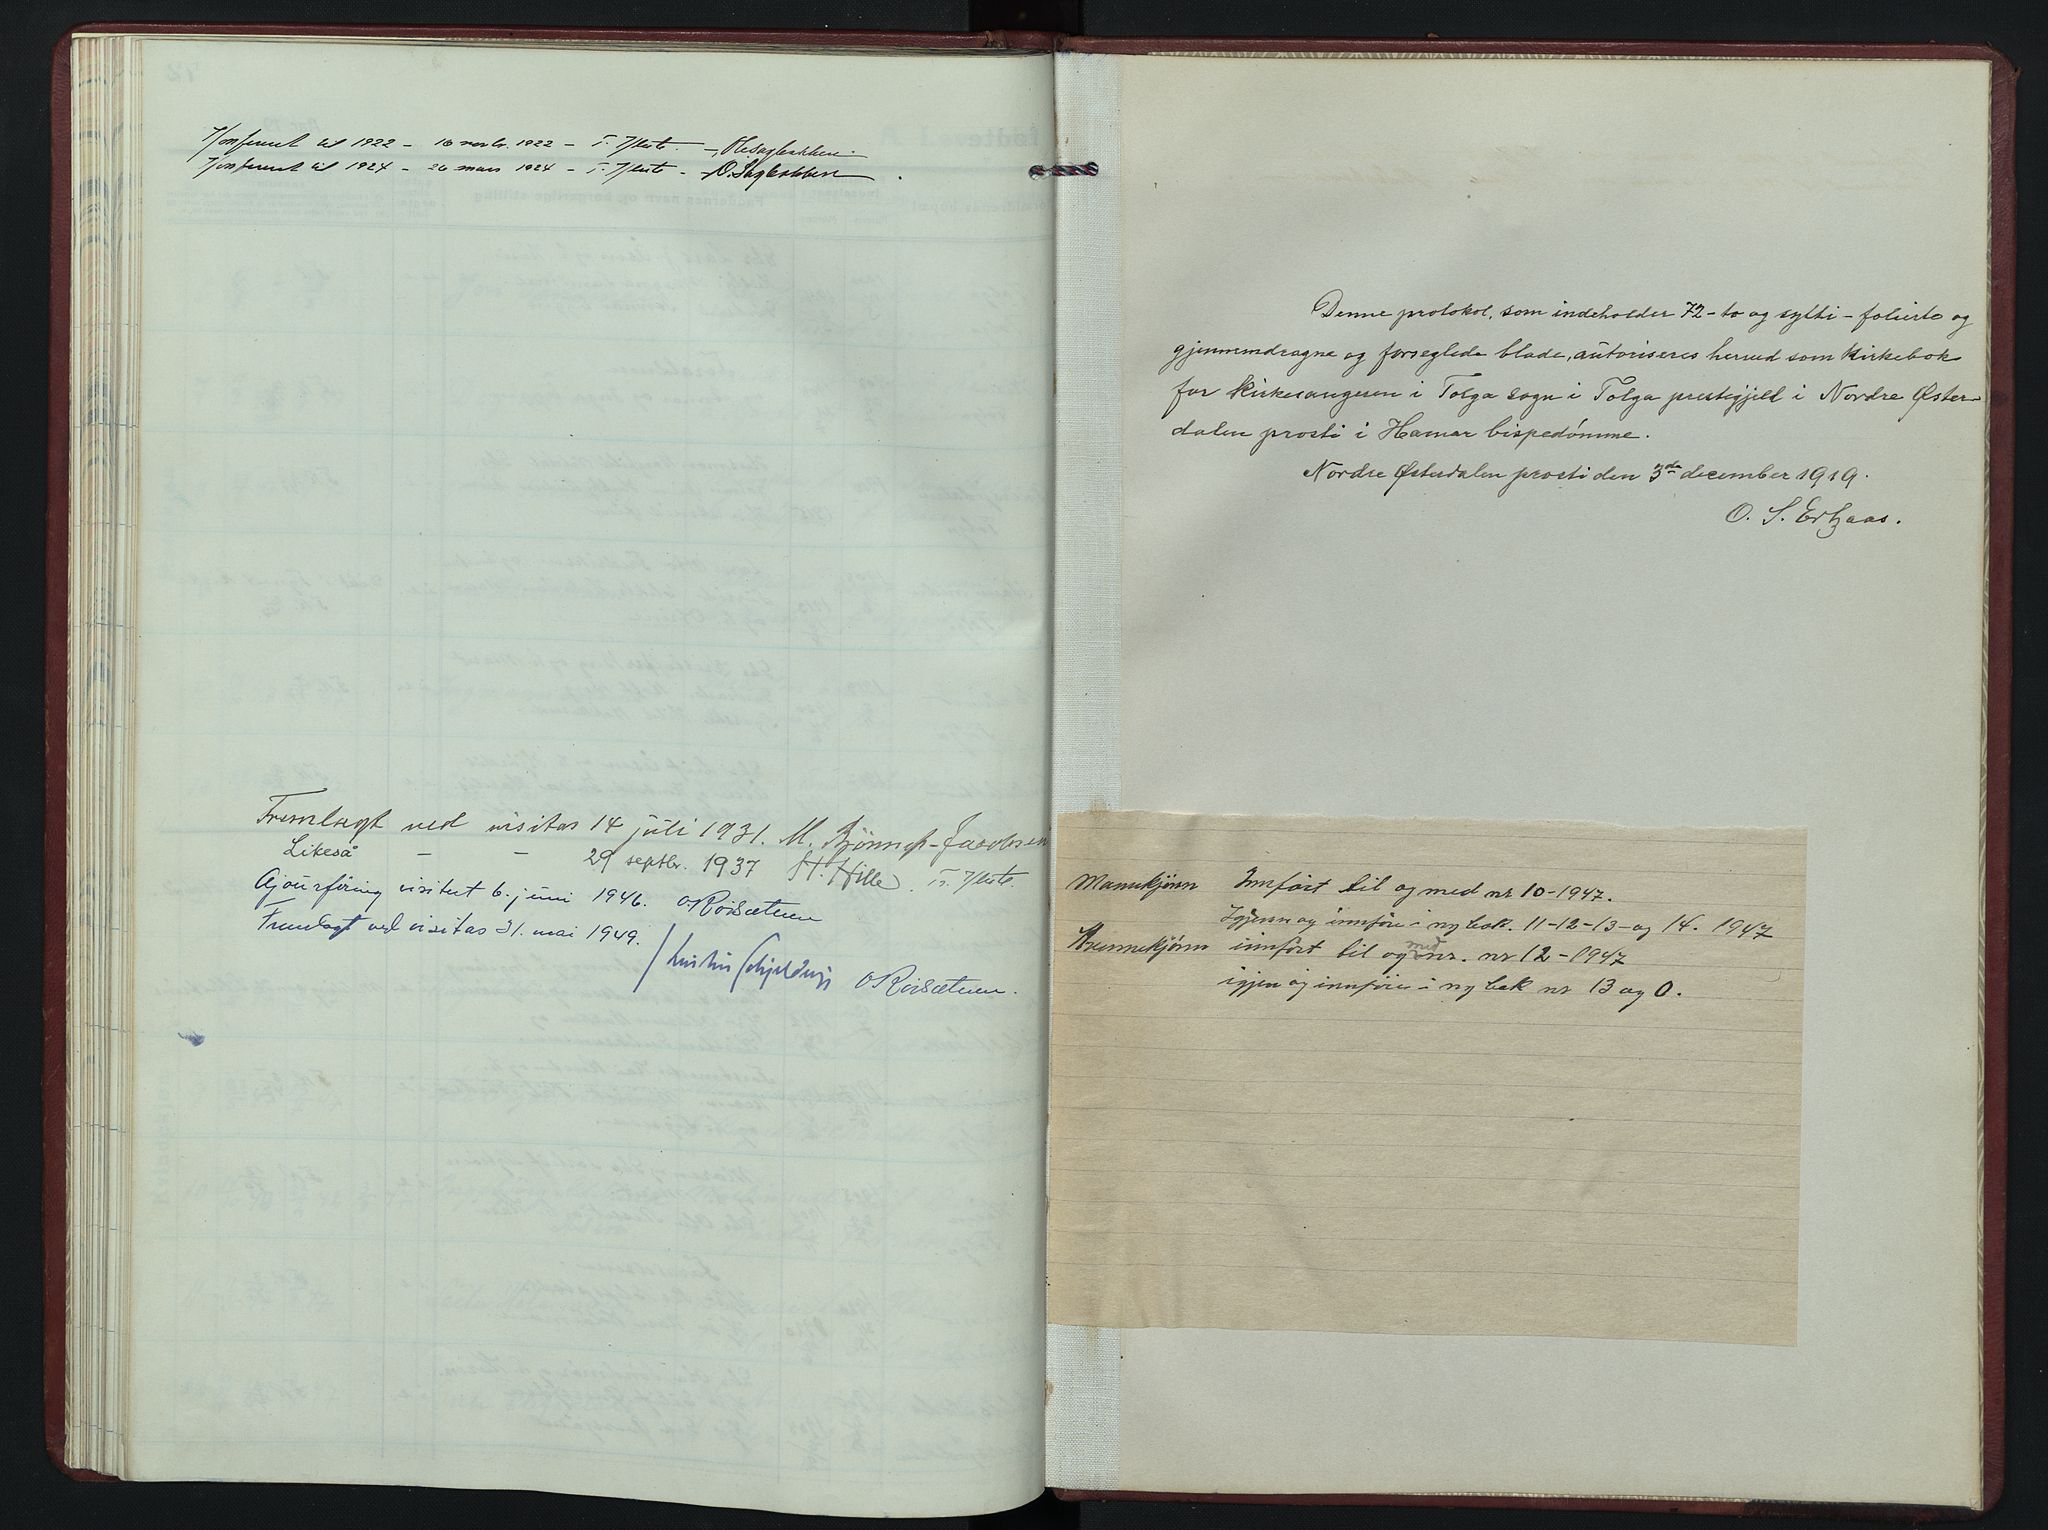 Konferert til 1922 – 18 novbr. 1922 – T. – O. Sagbakken
Konferert til 1924 – 26 mars 1924 – T. – O. Sagbakken
Fremlagt ved visitas 14 juli 1931. M. Bjønnes-Jacobsen
Likeså – – 29 septbr. 1937 H. Hille. T.
Ajourføring visitert 6. juni 1946. O Røisætuen
Fremlagt ved visitas 31. mai 1949.
Kristian Schjelderup O Røisætuen.
Denne protokol, som indeholder 72 – to og sytti – folierte og
gjennemdragne og forseglede blade, autoriseres herved som kirkebok
for kirkesangeren i Tolga sogn i Tolga prestegjeld i Nordre Øster-
dalen prosti i Hamar bispedømme.
Nordre Østerdalen prosti den 3de december 1919.
O. S. Erhaas.
Mannkjønn Innført til og med nr 10 – 1947.
Igjenn og innføre i ny bok. 11-12-13- og 14. 1947
Kvennekjønn innført til og med nr. nr 12 – 1947
igjen og innføre i ny bok nr 13 og 0.